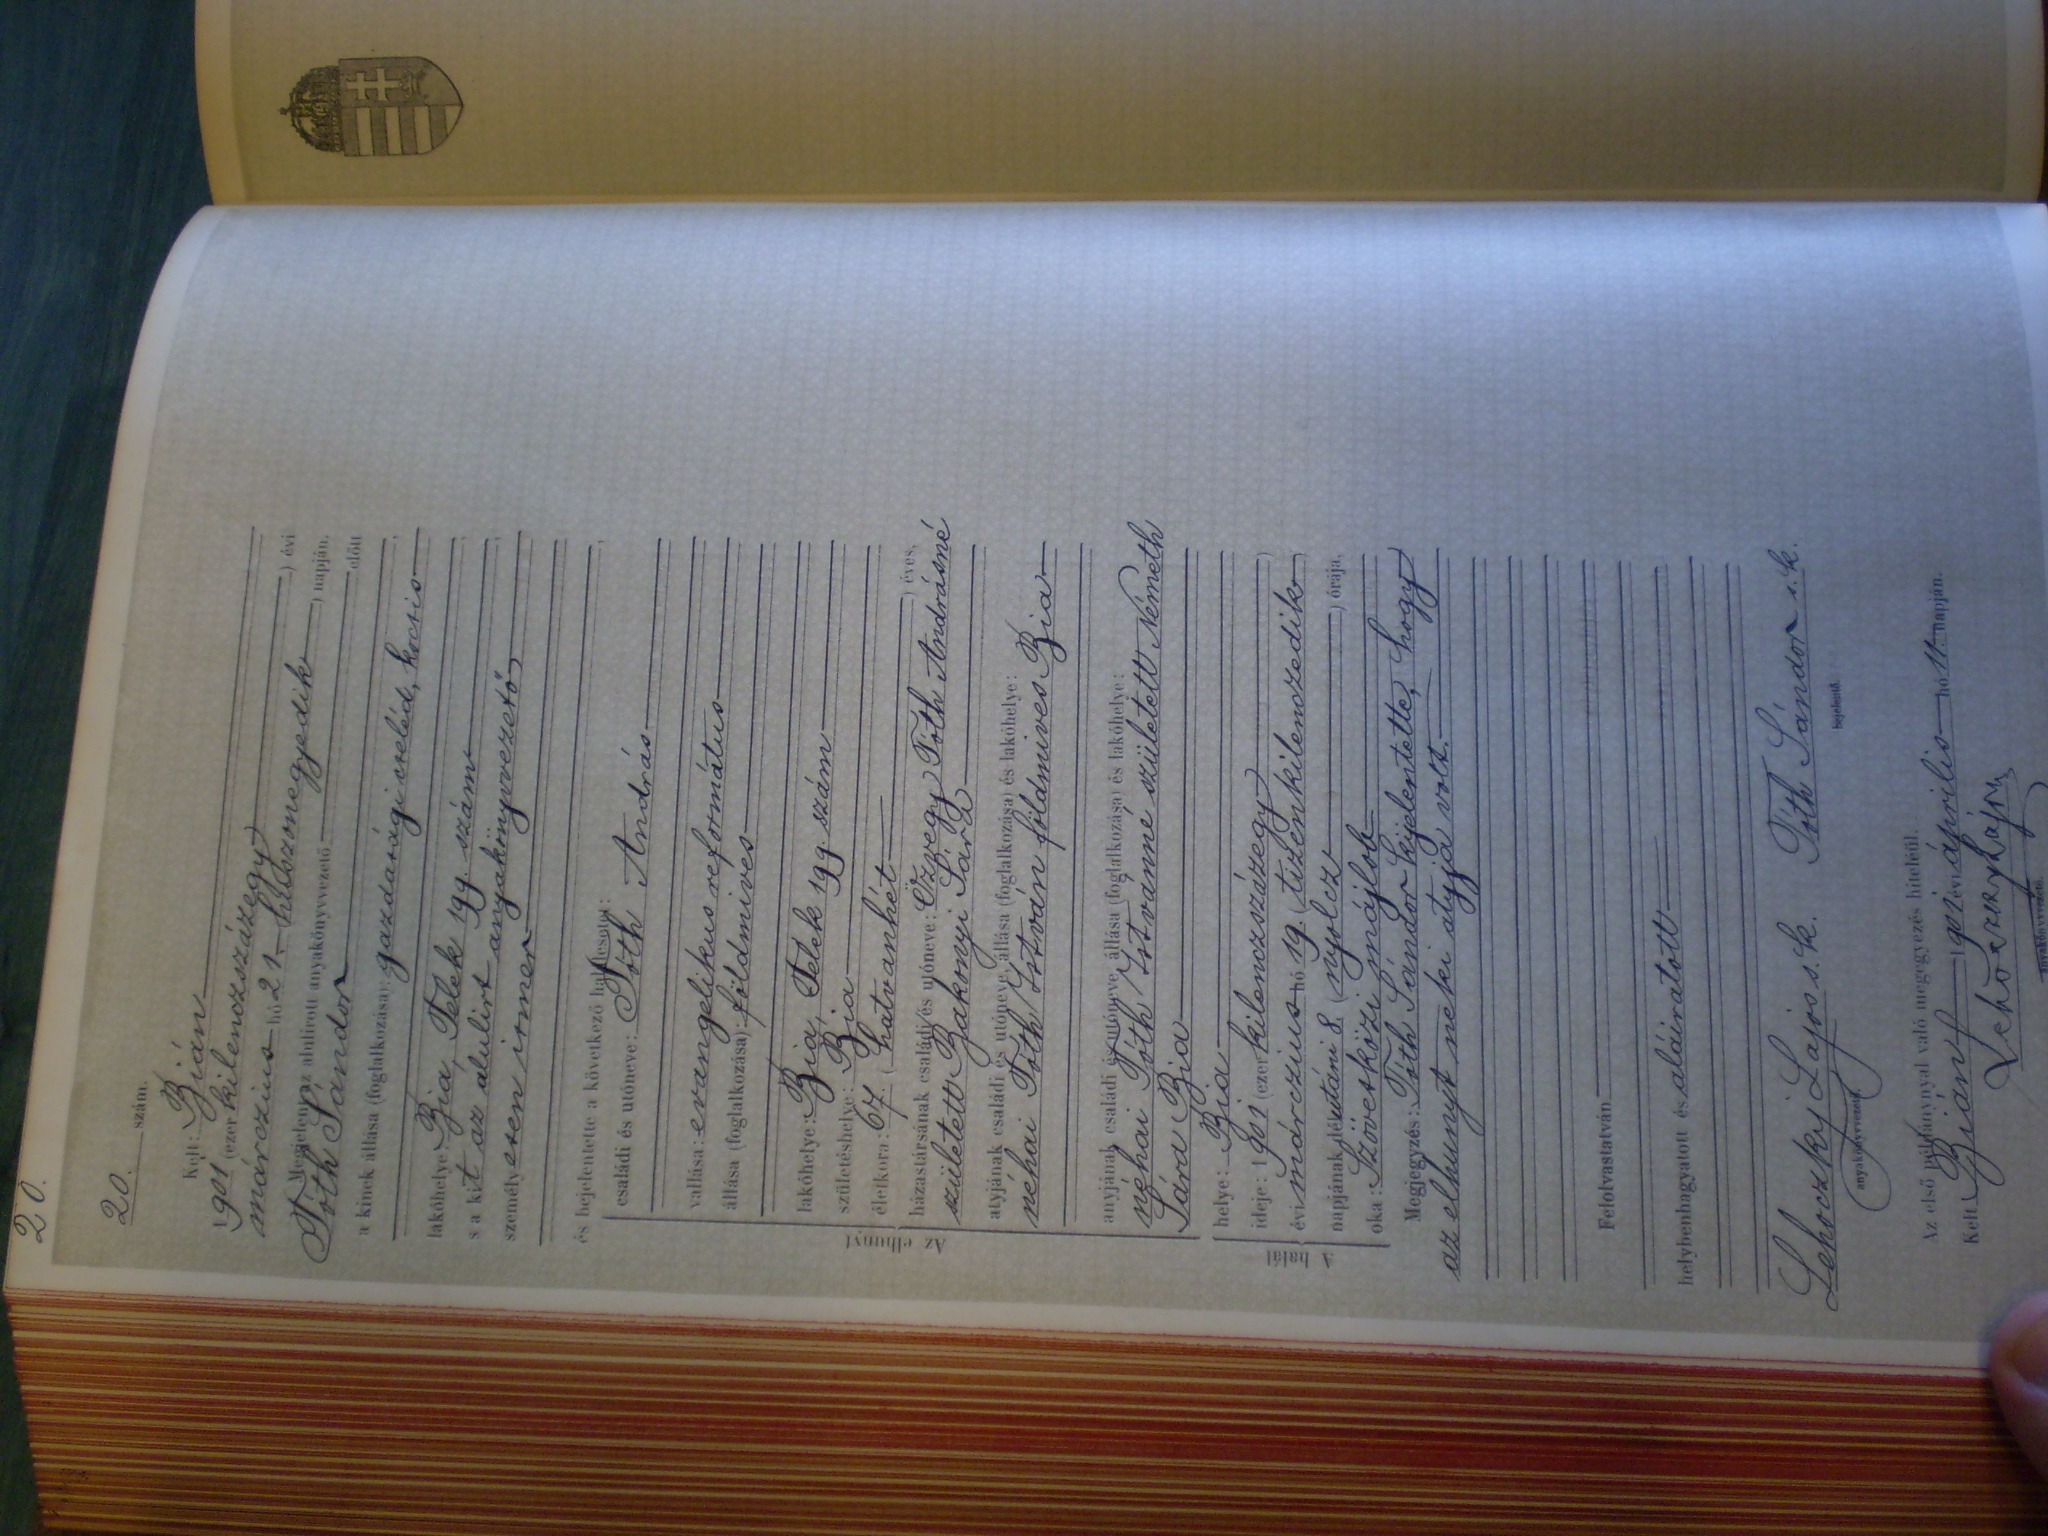 20.
20. szám.
Kelt: Bián
1901 (ezer kilenczszázegy) évi
márczius hó 21. (huszonegyedik) napján.
Megjelent az alulírott anyakönyvvezető előtt
Tóth Sándor
a kinek állása (foglalkozása): gazdasági cseléd, kocsis
lakóhelye: Bia, Telek 199. szám
s a kit az alulirt anyakönyvvezető
személyesen ismer
és bejelentette a következő halálesetet:
családi és utóneve: Tóth András
vallása: evangelikus református
állása (foglalkozása): földmives
lakóhelye: Bia, Telek 199. szám
születéshelye: Bia
életkora: 67. (hatvanhét) éves,
házastársának családi és utóneve: Özvegy Tóth Andrásné
született Bakonyi Sára
atyjának családi és utóneve, állása (foglalkozása) és lakóhelye:
néhai Tóth István földmives Bia
anyjának családi és utóneve, állása (foglalkozása) és lakóhelye:
néhai Tóth Istvánné született Németh
Sára Bia
Az elhunyt
helye: Bia
ideje: 1901 (ezer kilenczszázegy)
évi márczius hó 19. (tizenkilenczedik)
napjának délutáni 8. (nyolcz) órája,
oka: Szövetközi májlob
A halál
Megjegyzés: Tóth Sándor kijelentette, hogy
az elhunyt neki atyja volt.
Felolvastatván
helybenhagyatott és aláiratott
Lehoczky Lajos s.k. Tóth Sándor s.k.
anyakönyvvezető. bejelentő.
Az első példánynyal való megegyezés hiteléül.
Kelt Bián 1901 évi április hó 11. napján.
Lehoczky Lajos
anyakönyvvezető.